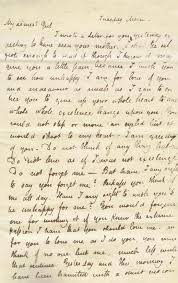 My dearest Girl Tuesday Morn.
I wrote a letter for you yesterday
to have seen your mother. I
not enough to send it though I know it may
give you a little pain because I
to see how unhappy I am for love of you
and endeavour as much as I can to
entice you to give up your whole heart to me
whose whole existence hangs upon you. You
could not step or move an eyelid but it
would shoot to my heart. I am greedy
of you. Do not think of any thing but me.
Do not live as if I was not existing.
Do not forget me But have I any right
to say you forget me? Perhaps you think
of me all day. Have I any right to wish you to
be unhappy for me? You would forgive
me for wishing it if you knew the extreme
passion I have that you should love me
for you to love me as I do you you must
think of no one but me, much less write
that sentence. Yesterday and this morning I
have been haunted with a sweet vision